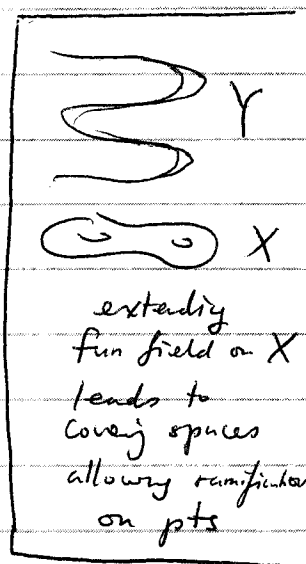 Y
X
extending
fun field on X
leads to
covering spaces
allowing ramification
on pts